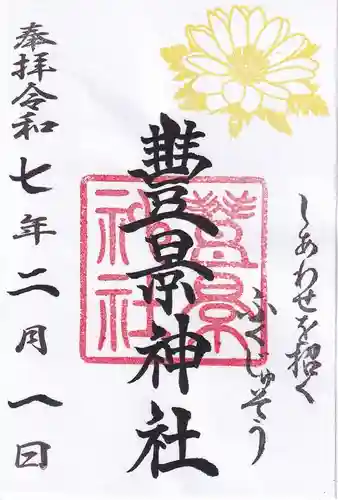 しあわせを招く
ふくじゅそう
豊景神社
豊景神社
奉拝令和七年二月一日